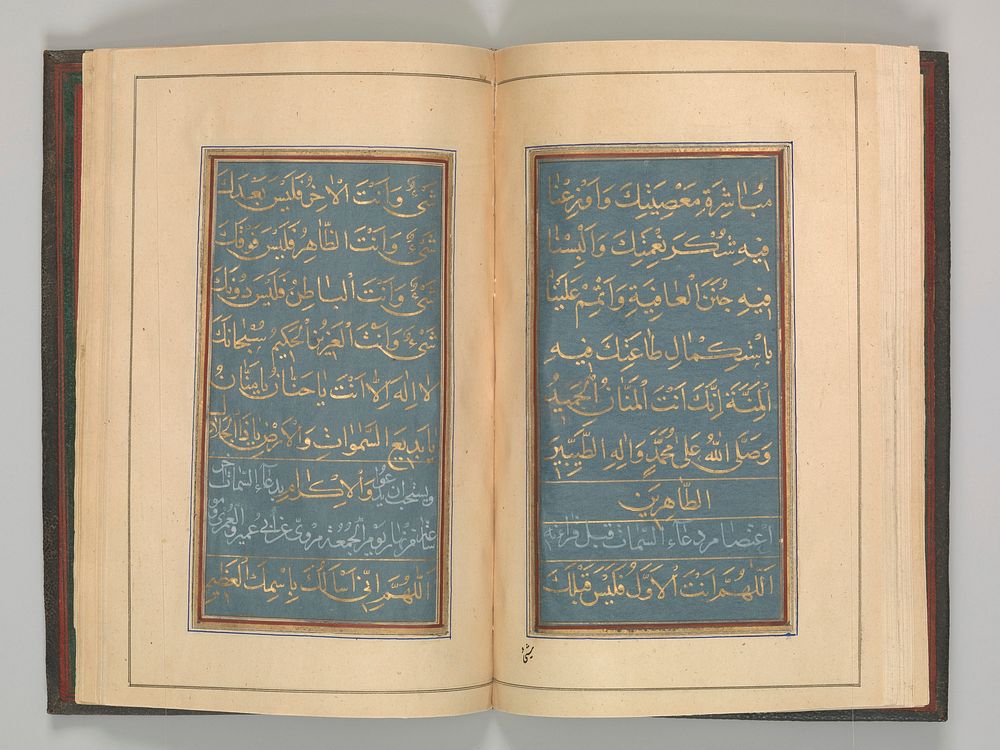 مُبَاشَرَةِ مَعْصِيَتِكَ وَاَوْزِعْنَا
فِيهِ شُكْرَ نِعْمَتِكَ وَاَلْبِسْنَا
فِيهِ جُنَنَ الْعَافِيَةِ وَاَتْمِمْ عَلَيْنَا
بِاسْتِكْمَالِ طَاعَتِكَ فِيهِ
الْمِنَّةَ اِنَّكَ اَنْتَ الْمَنَّانُ الْحَمِيدُ
وَصَلَّى اللهُ عَلٰى مُحَمَّدٍ وَاٰلِهِ الطَّيِّبِينَ
الطَّاهِرِينَ
دعَاءِ السَّمَاتِ قبلَ قراءته
اَللّٰهُمَّ اَنْتَ الْاَوَّلُ فَلَيْسَ قَبْلَكَ
شَئ
شَىْءٌ وَاَنْتَ الْاٰخِرُ فَلَيْسَ بَعْدَكَ
شَىْءٌ وَاَنْتَ الظَّاهِرُ فَلَيْسَ فَوْقَكَ
شَىْءٌ وَاَنْتَ الْبَاطِنُ فَلَيْسَ دُونَكَ
شَىْءٌ وَاَنْتَ الْعَزِيزُ الْحَكِيمُ سُبْحَانَكَ
لَا اِلٰهَ اِلَّا اَنْتَ يَا حَنَّانُ يَا مَنَّانُ
يَا بَدِيعَ السَّمٰوَاتِ وَالْاَرْضِ يَا ذَا الْجَلَالِ
وَالْاِكْرَامِ ويستحب ان يدعو بدعَاءِ السَّمَات
سَاعَة من نهَار يَوْمِ الْجُمُعَة مروىّ عَن ابى عمرو العمرى
اَللّٰهُمَّ اِنِّى اَسْاَلُكَ بِاسْمِكَ الْعَظِيمِ